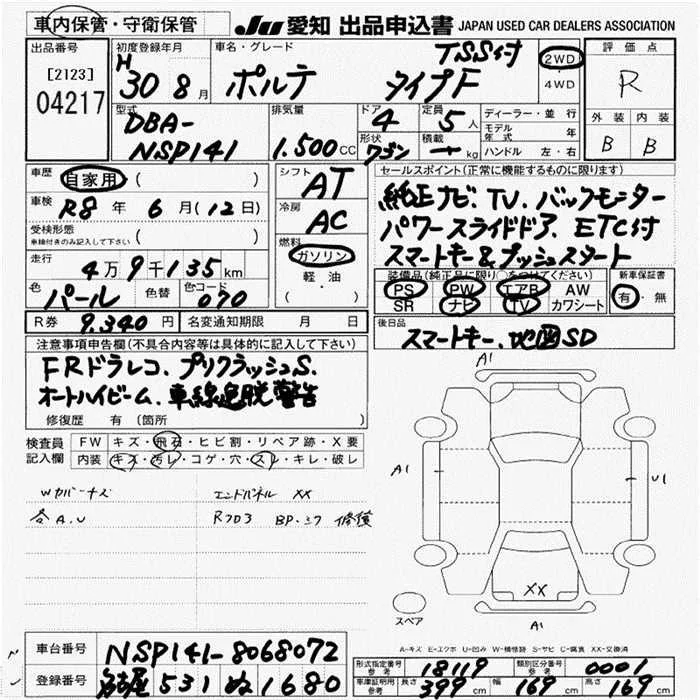 車内保管・守衛保管
JU 愛知 出品申込書 JAPAN USED CAR DEALERS ASSOCIATION
出品番号
[2123]
04217
初度登録年月
H 30 8月
車名・グレード
TSS付
ポルテ タイプF
2WD
4WD
評価点
R
外装 内装
B B
型式
DBA-
NSP141
排気量
1.500cc
ドア
4
定員
5人
形状
ワゴン
積載
ー kg
ディーラー・並行
モデル年式 年
ハンドル 左・右
車歴
自家用 ( )
車検
R8年 6月(12日)
受検形態
車検付きのみ記入して下さい ( )
走行
4万9千135km
色
パール
色替
色コード
070
R券 9.340円
名変通知期限 月 日
シフト
AT
冷房
AC
燃料
ガソリン
軽油
( )
セールスポイント(正常に機能するものに限ります)
純正ナビ、TV、バックモニター
パワースライドドア、ETC付
スマートキー&プッシュスタート
装備品(純正品に限り○をつけてください)
PS PW エアB AW
SR ナビ TV カワシート
新車保証書
有・無
後日品
スマートキー、地図SD
注意事項申告欄(不具合内容等は具体的に記入して下さい)
FRドラレコ、プリクラッシュS、
オートハイビーム、車線逸脱警告
修復歴 有 (箇所 )
検査員
記入欄
FW キズ・飛石・ヒビ割・リペア跡・X要
内装 キズ・汚レ・コゲ・穴・スレ・キレ・破レ
Wカバーキズ
各A、U
エンドパネル XX
Rフロア BP・ミワ 修復
A1
A1
U1
XX
A1
スペア
A-キズ E-エクボ U-凹み W-補修跡 S-サビ C-腐食 XX-交換済
車台番号 NSP141-8068072
登録番号 名古屋 531 ぬ 1680
形式指定番号 参考 18119
類別区分番号 参考 0001
車庫証明用 参考 長さ 399cm 幅 169cm 高さ 169cm